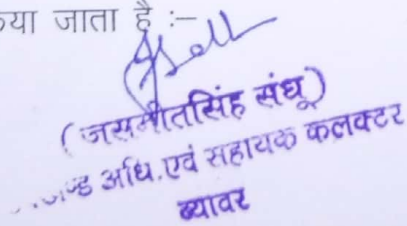 या जाता है :—
(जसमीतसिंह संधू)
ण्ड अधि.एवं सहायक कलक्टर
ब्यावर